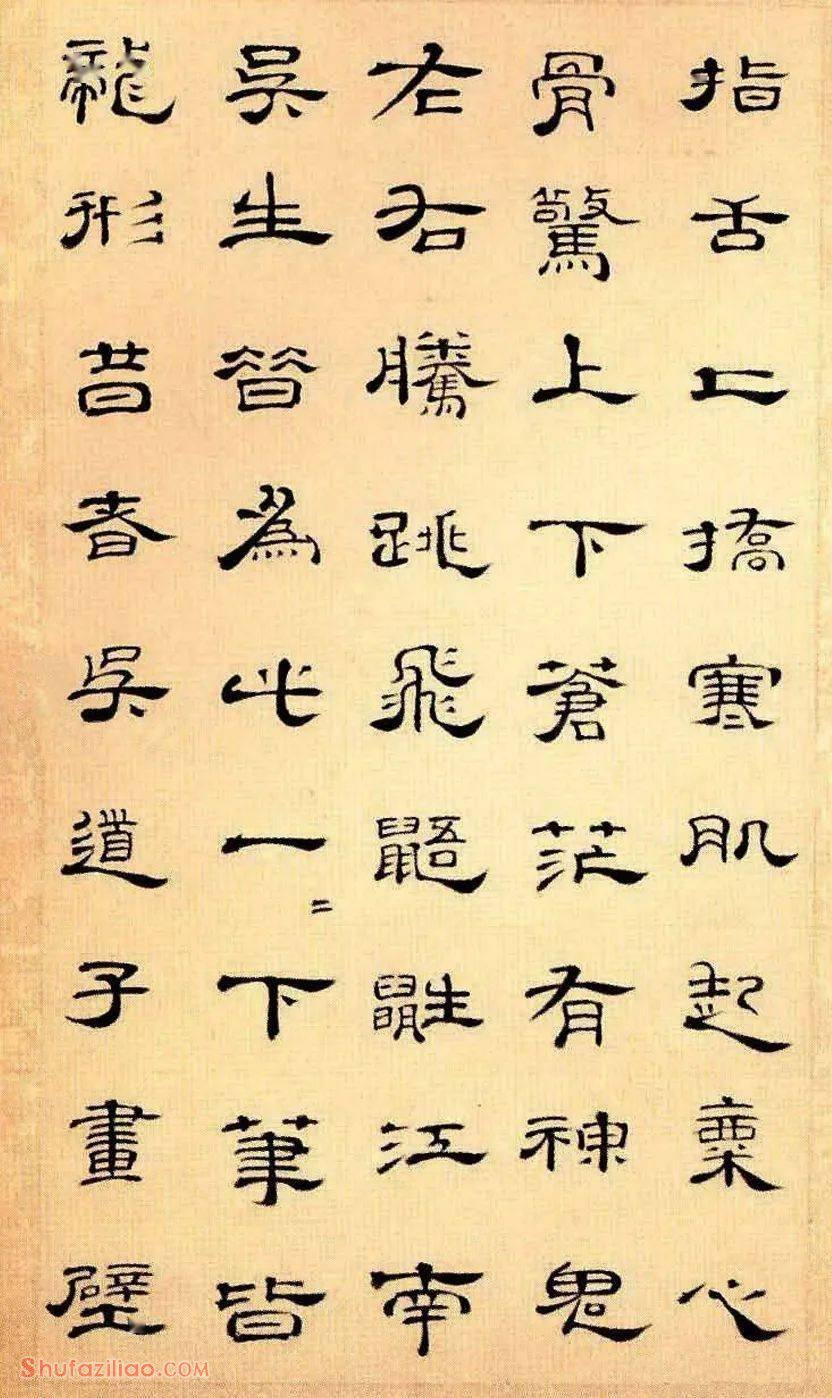 指舌上撟寒肌起粟心
骨驚上下蒼茫有神鬼
左右騰跳飛鼯鼪江南
吳生替為此一〻下筆皆
龍形昔者吳道子畫壁
Shufaziliao.COM